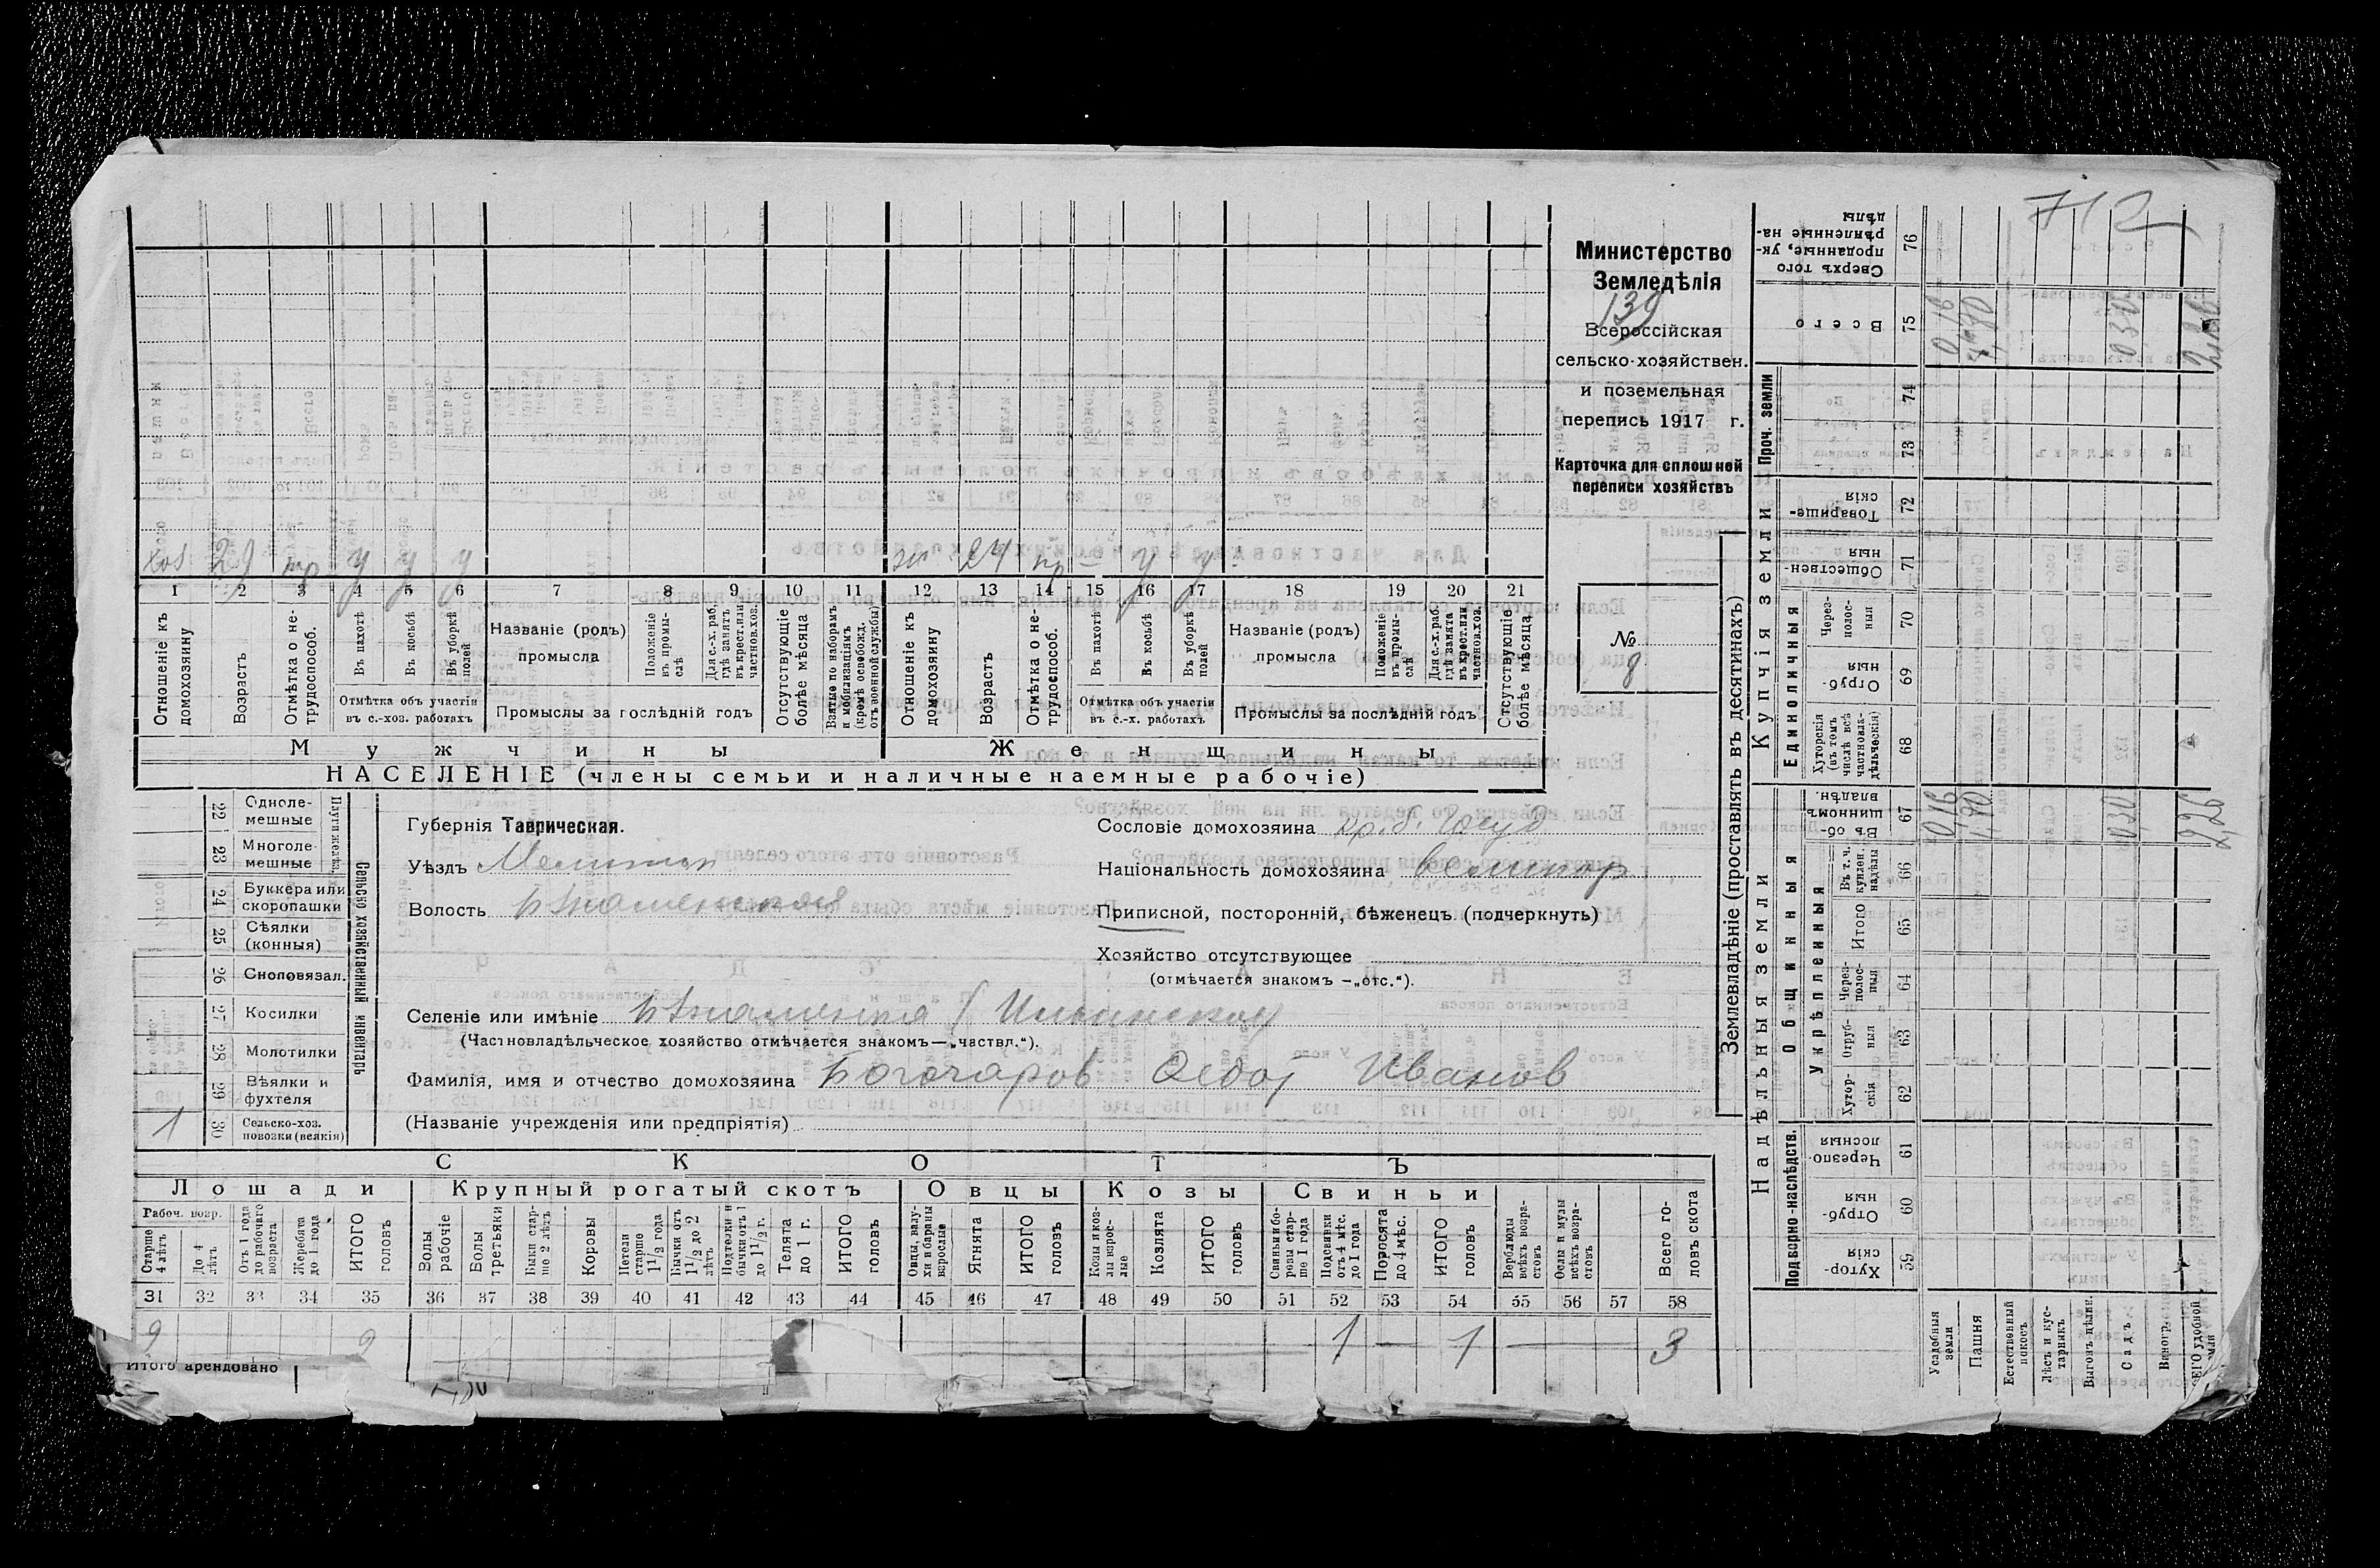 712
Министерство
Земледѣлія
139
Всероссійская
сельско-хозяйствен.
и поземельная
перепись 1917 г.
Карточка для сплошной
переписи хозяйствъ
№
8
хоз 29 тр у у у 24 у у
1 2 3 4 5 6 7 8 9 10 11 12 13 14 15 16 17 18 19 20 21
Отношеніе къ домохозяину
Возрастъ
Отмѣтка о не-трудоспособ.
Въ пахотѣ
Въ косьбѣ
Въ уборкѣ полей
Отмѣтка объ участіи въ с.-хоз. работахъ
Названіе (родъ) промысла
Положеніе въ промы-слѣ
Для с.-х. раб. гдѣ занятъ въ крест. или частнов. хоз.
Промыслы за послѣдній годъ
Отсутствующіе болѣе мѣсяца
Взятые по наборамъ и мобилизаціямъ (кромѣ освобожд. отъ военной службы)
Отношеніе къ домохозяину
Возрастъ
Отмѣтка о не-трудоспособ.
Въ пахотѣ
Въ косьбѣ
Въ уборкѣ полей
Отмѣтка объ участіи въ с.-х. работахъ
Названіе (родъ) промысла
Положеніе въ промы-слѣ
Для с.-х. раб. гдѣ занята въ крест. или частнов. хоз.
Промыслы за послѣдній годъ
Отсутствующіе болѣе мѣсяца
Мужчины Женщины
НАСЕЛЕНІЕ (члены семьи и наличные наемные рабочіе)
22 Одноле-мешные
23 Многоле-мешные
Плуги желѣз.
24 Буккера или скоропашки
25 Сѣялки (конныя)
26 Сноповязал.
27 Косилки
28 Молотилки
29 Вѣялки и фухтеля
1 30 Сельско-хоз. повозки (всякія)
Сельско хозяйственный инвентарь
Губернія Таврическая.
Уѣздъ Мелитоп
Волость Б Знаменская
Сословіе домохозяина
Національность домохозяина великор
Приписной, посторонній, бѣженецъ (подчеркнуть)
Хозяйство отсутствующее
(отмѣчается знакомъ —„отс.“).
Селеніе или имѣніе Б Знаменка
(Частновладѣльческое хозяйство отмѣчается знакомъ—„частвл.“).
Фамилія, имя и отчество домохозяина Богочаров Федор Иванов
(Названіе учрежденія или предпріятія)
СКОТЪ
Лошади Крупный рогатый скотъ Овцы Козы Свиньи
Рабоч. возр.
Старше 4 лѣтъ
До 4 лѣтъ
Отъ 1 года до рабочаго возраста
Жеребята до 1 года
ИТОГО головъ
Волы рабочіе
Волы третьяки
Быки стар-ше 2 лѣтъ
Коровы
Нетели старше 1 1/2 года
Бычки отъ 1 1/2 до 2 лѣтъ
Подтелки и бычки отъ 1 до 1 1/2 г.
Телята до 1 г.
ИТОГО головъ
Овцы, валу-хи и бараны взрослые
Ягнята
ИТОГО головъ
Козы и коз-лы взрос-лые
Козлята
ИТОГО головъ
Свиньи и бо-ровы стар-ше 1 года
Подсвинки отъ 4 мѣс. до 1 года
Поросята до 4 мѣс.
ИТОГО головъ
Верблюды всѣхъ возра-стовъ
Ослы и мулы всѣхъ возра-стовъ
Всего го-ловъ скота
31 32 33 34 35 36 37 38 39 40 41 42 43 44 45 46 47 48 49 50 51 52 53 54 55 56 57 58
1 — 1 — 3
Итого арендовано
Землевладѣніе (проставлять въ десятинахъ)
Надѣльныя земли Купчія земли Проч. земли
Подворно-наслѣдств.
Общинныя
Укрѣпленныя
Единоличныя
Хутор-скія 59
Отруб-ныя 60
Черезпо лосныя 61
Хутор-скія 62
Отруб-ныя 63
Через-полос-ныя 64
Итого 65
Въ т. ч. куплен. надѣлы 66
Въ об-щинномъ владѣн. 67
Хуторскія (въ томъ числѣ всѣ частновла-дѣльческія) 68
Отруб-ныя 69
Через-полос-ныя 70
Обществен-ныя 71
Товарище-скія 72
73
74
Всего 75
Сверхъ того проданные, ук-рѣпленные на-дѣлы 76
Усадебныя земли 0,16 0,16
Пашня
Естественный покосъ
Лѣсъ и кус-тарникъ
Выгонъ цѣлин.
Садъ 0,30 0,30
Виногр.